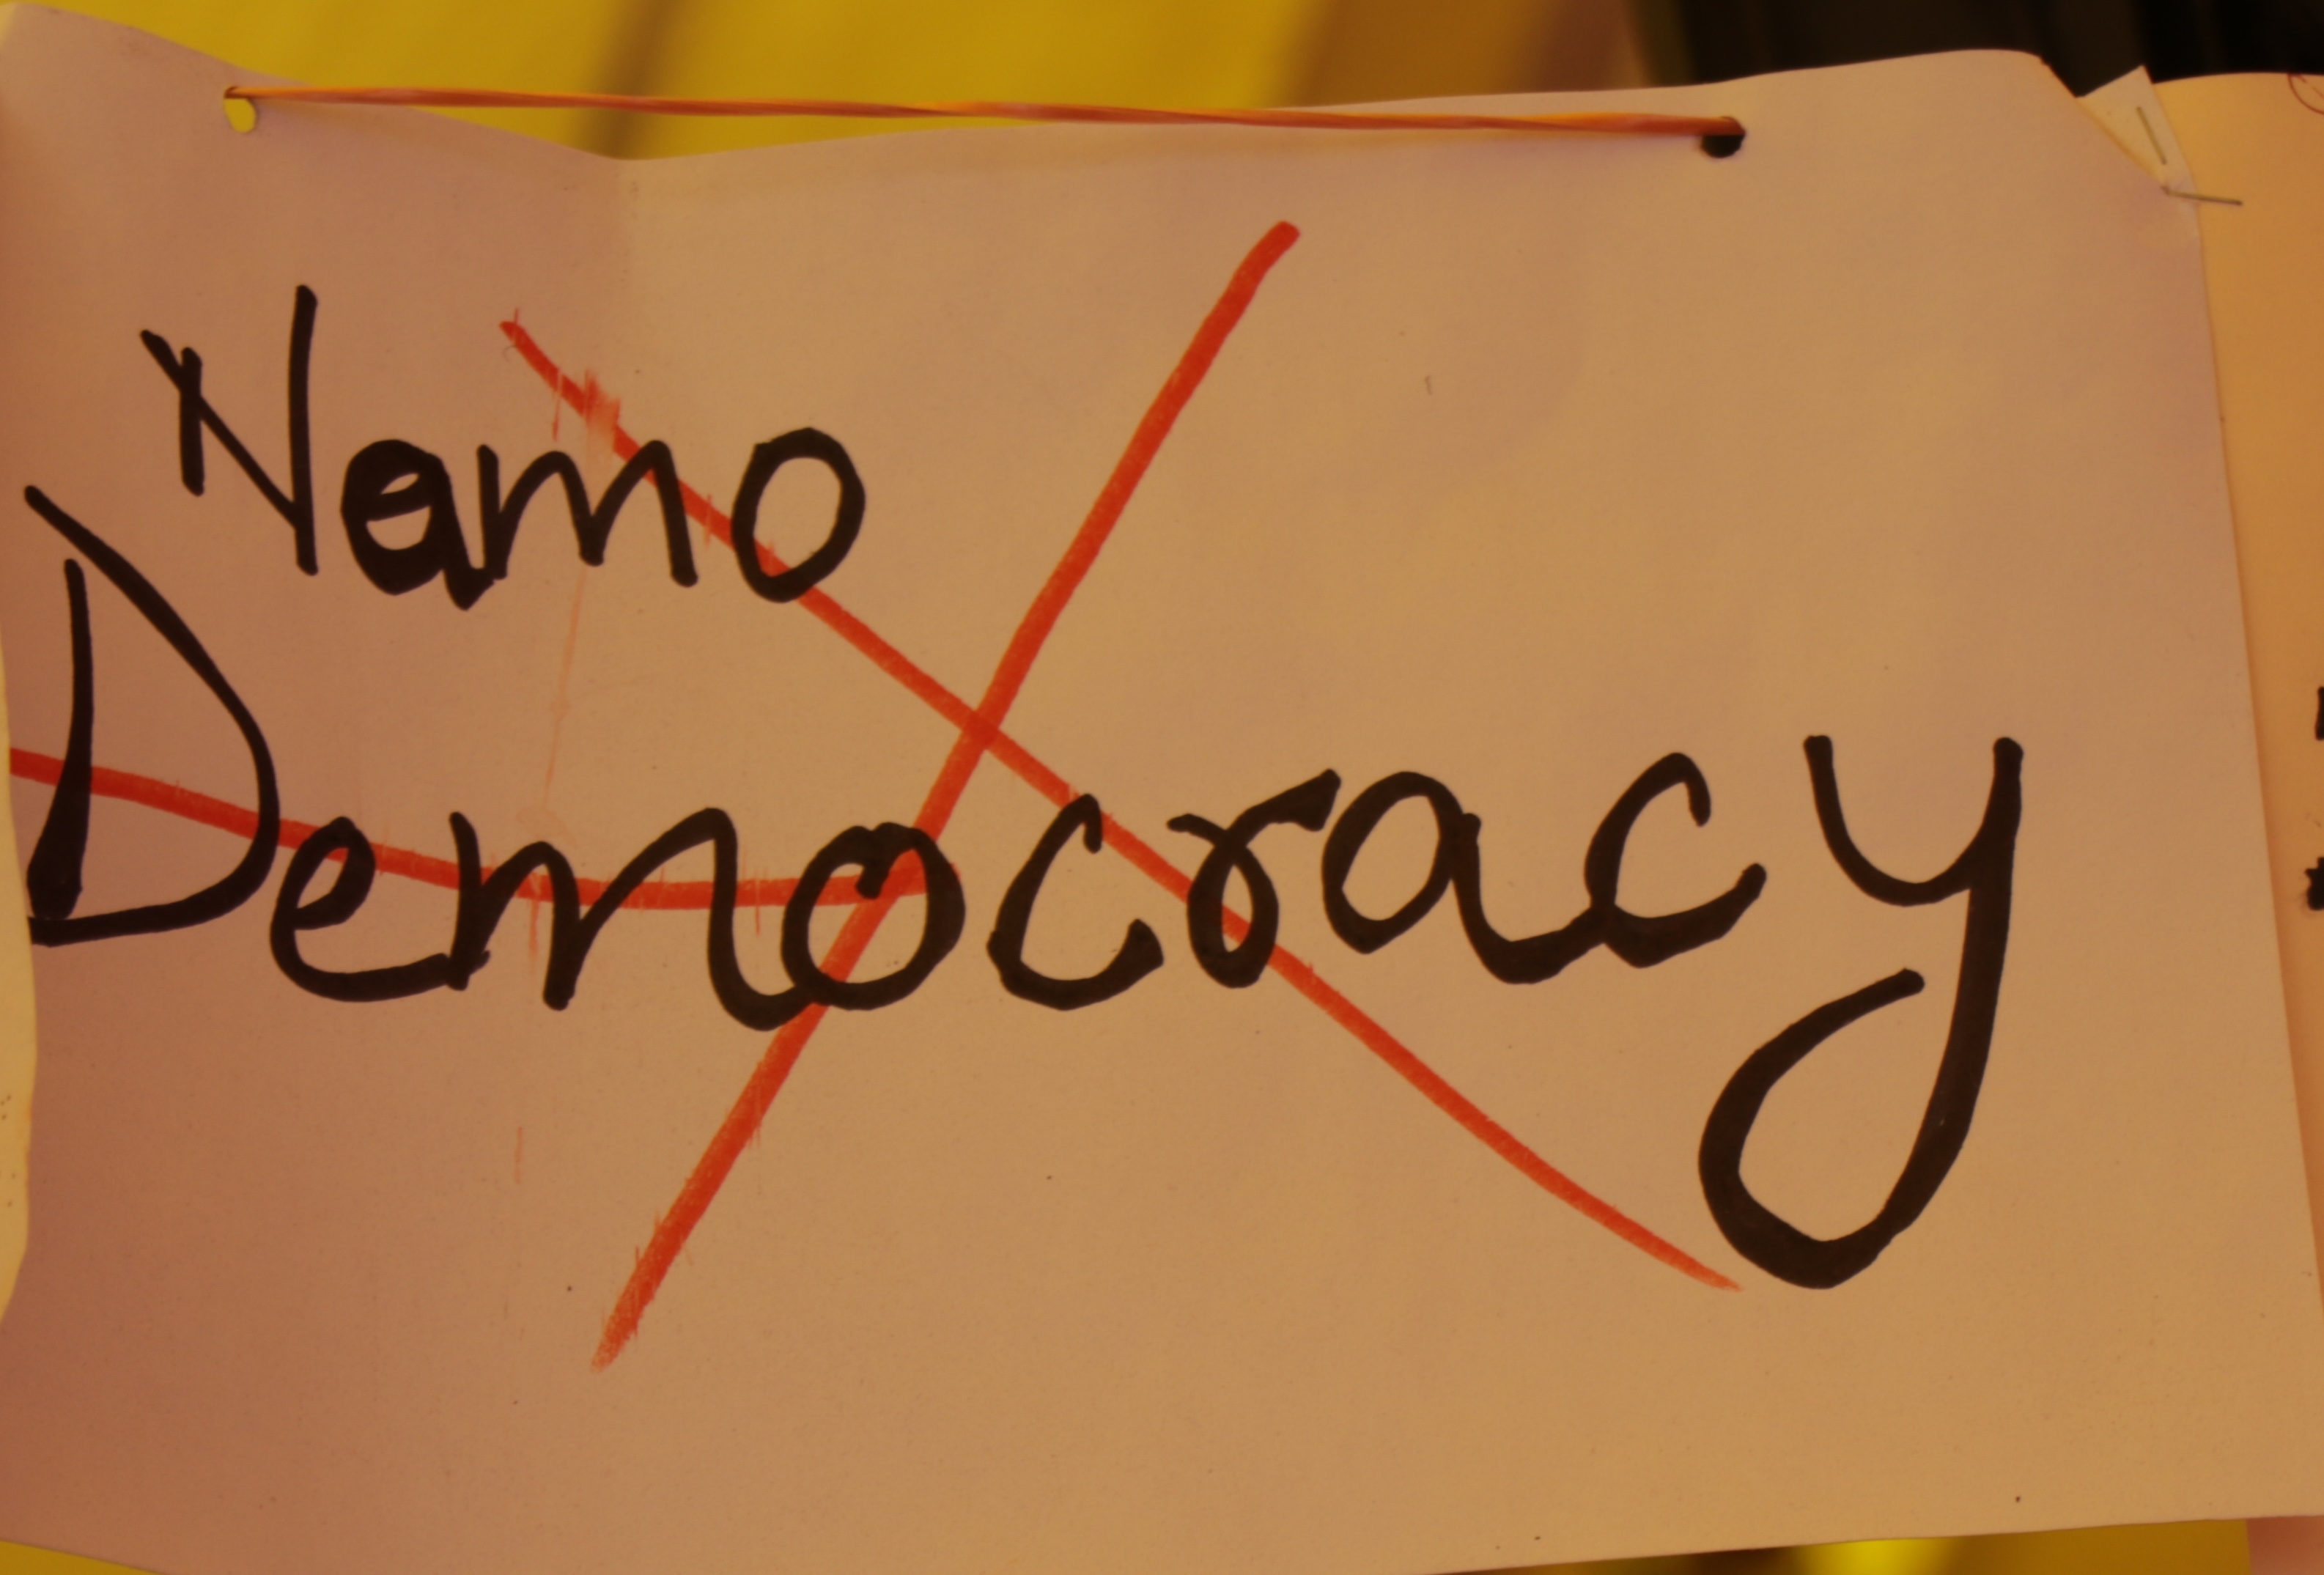 Namo
Democracy